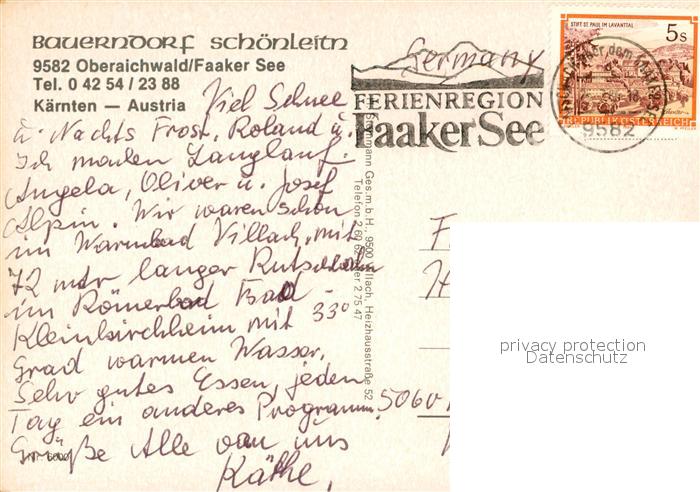 Bauerndorf Schönleitn
9582 Oberaichwald/Faaker See
Tel. 0 42 54 / 23 88
Kärnten — Austria
Viel Schnee
u. Nachts Frost. Roland u.
Ich machen Langlauf.
Angela, Oliver u. Josef
Alpin. Wir waren schon
im Warmbad Villach, mit
72 mtr langer Rutschbahn
im Römerbad Bad
Kleinkirchheim mit 33°
Grad warmen Wasser.
Sehr gutes Essen, jeden
Tag ein anderes Programm.
Grüße Alle von uns
Käthe.
Germany
FERIENREGION
Faaker See
STIFT ST. PAUL IM LAVANTTAL
5s
REPUBLIK ÖSTERREICH
9582
Ges.m.b.H., 9500 Villach, Heizhausstraße 52
Telefon 2 60 62 2 75 47
F
H
5060
privacy protection
Datenschutz